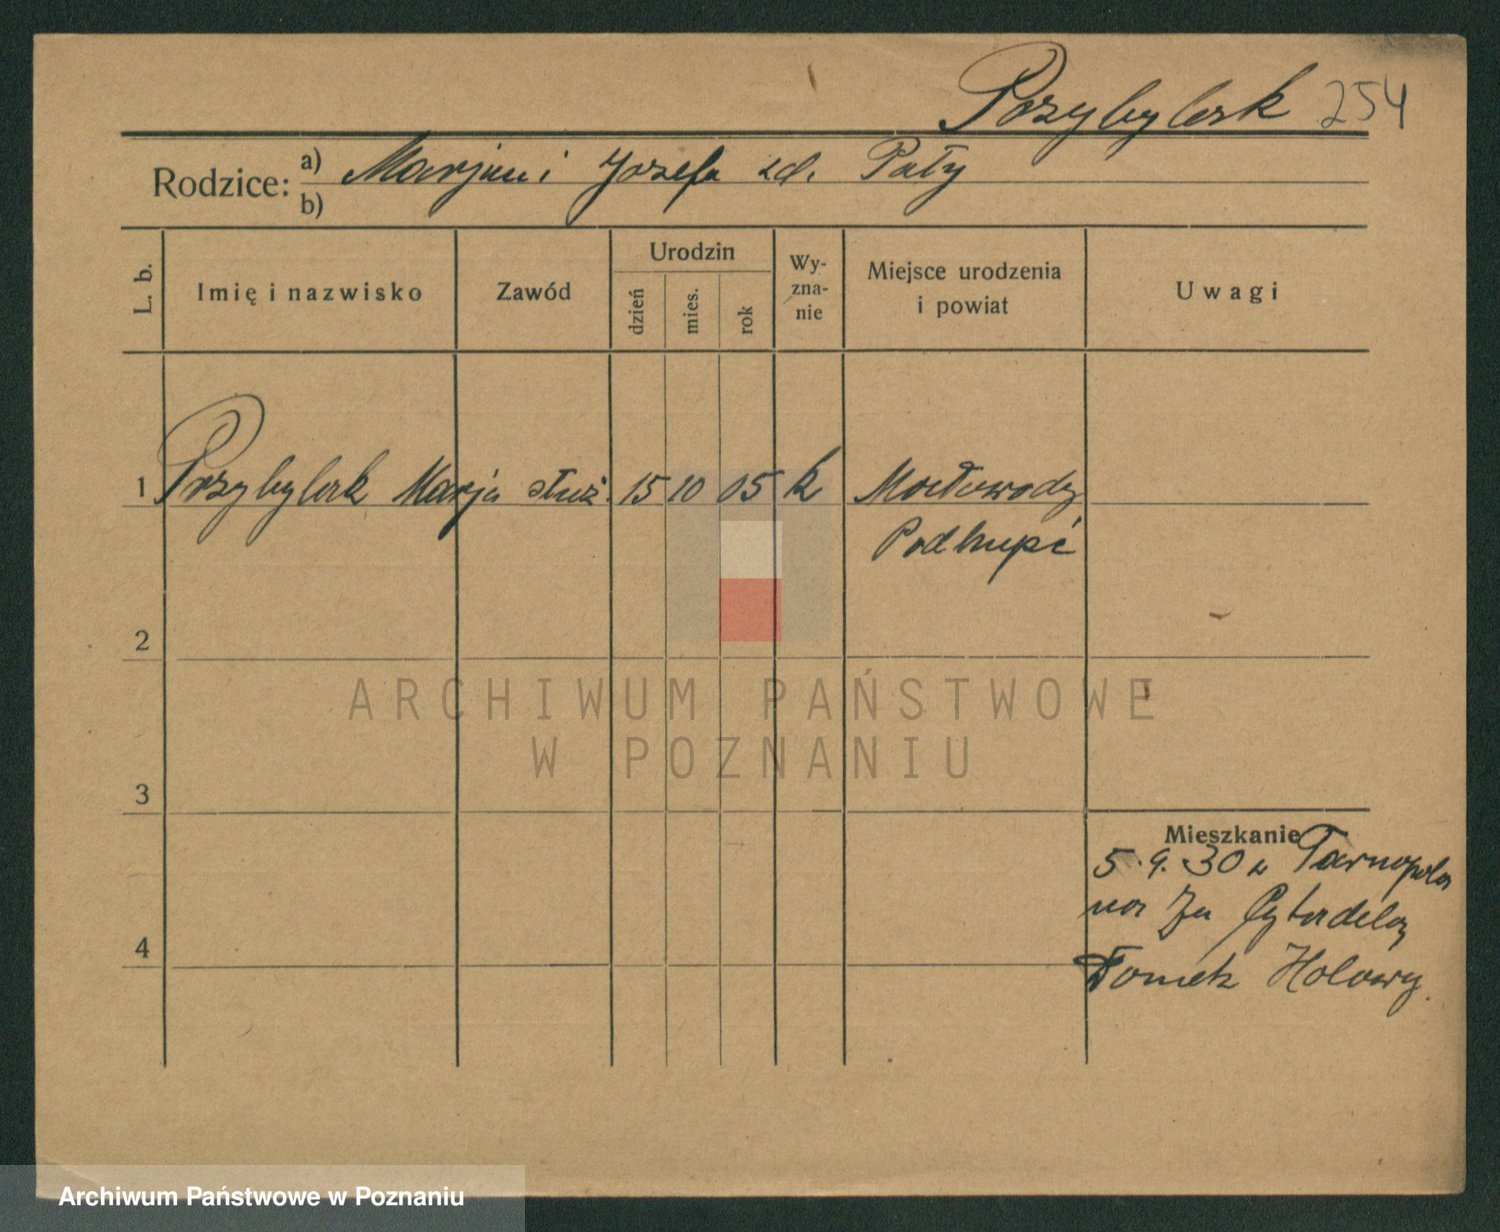 Przybylak 254
Rodzice: a) Marjan i Józefa zd. Pały
b)
L. b. Imię i nazwisko Zawód Urodzin dzień mies. rok Wy-zna-nie Miejsce urodzenia i powiat Uwagi
1 Przybylak Marja służ. 15 10 05 k Mołowody
Podhajce
2
ARCHIWUM PAŃSTWOWE
W POZNANIU
3
Mieszkanie
5.9.30 z Tarnopola
na Za Cytadelą
Tomek Holowy.
4
Archiwum Państwowe w Poznaniu